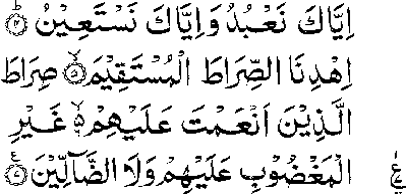 اِيَّاكَ نَعْبُدُ وَاِيَّاكَ نَسْتَعِيْنُ ؕ﴿۴﴾
اِهْدِنَا الصِّرَاطَ الْمُسْتَقِيْمَ ۙ﴿۵﴾ صِرَاطَ
الَّذِيْنَ اَنْعَمْتَ عَلَيْهِمْ ۙ۬﴿۶﴾ غَيْرِ
الْمَغْضُوْبِ عَلَيْهِمْ وَلَا الضَّآلِّيْنَ ﴿۷﴾ ع